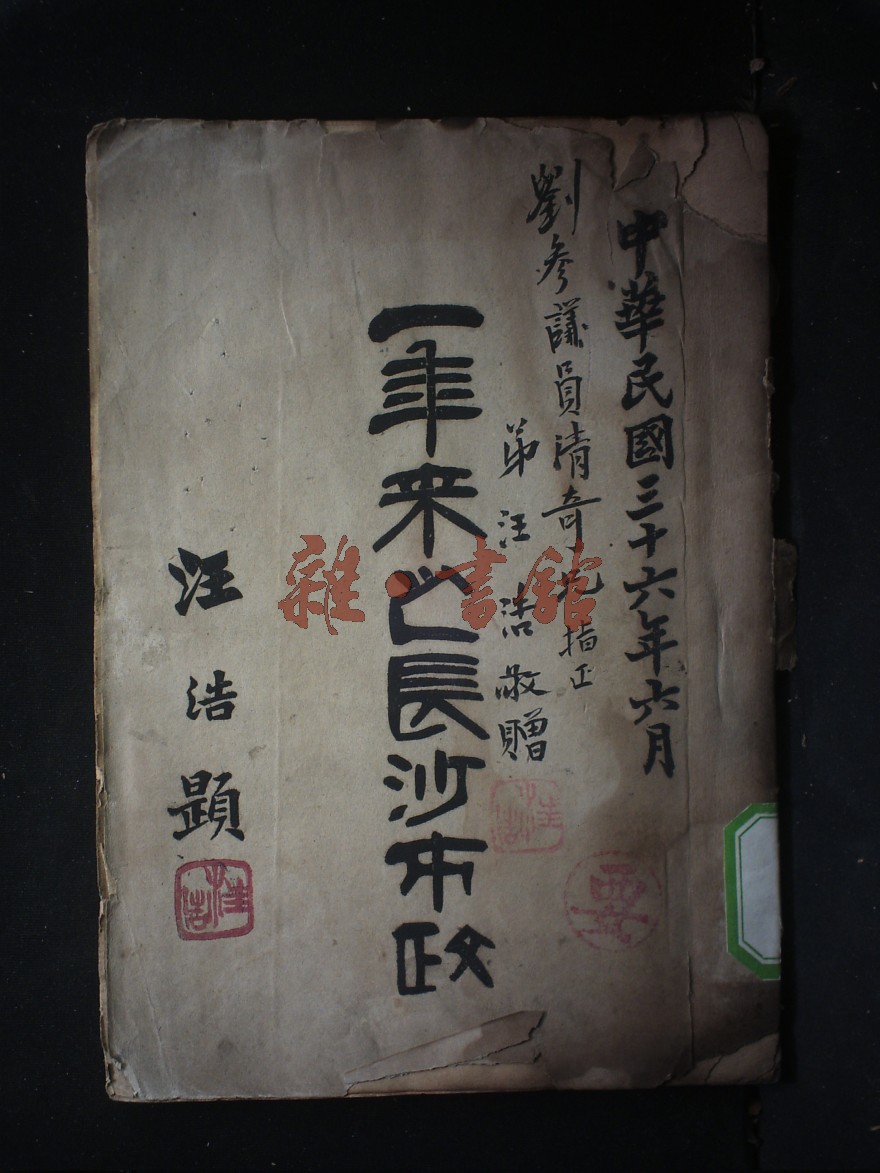 中華民國三十六年六月
劉参議員清奇兄指正
弟汪浩敬贈
一年来之長沙市政
汪浩題
雜·書館
要